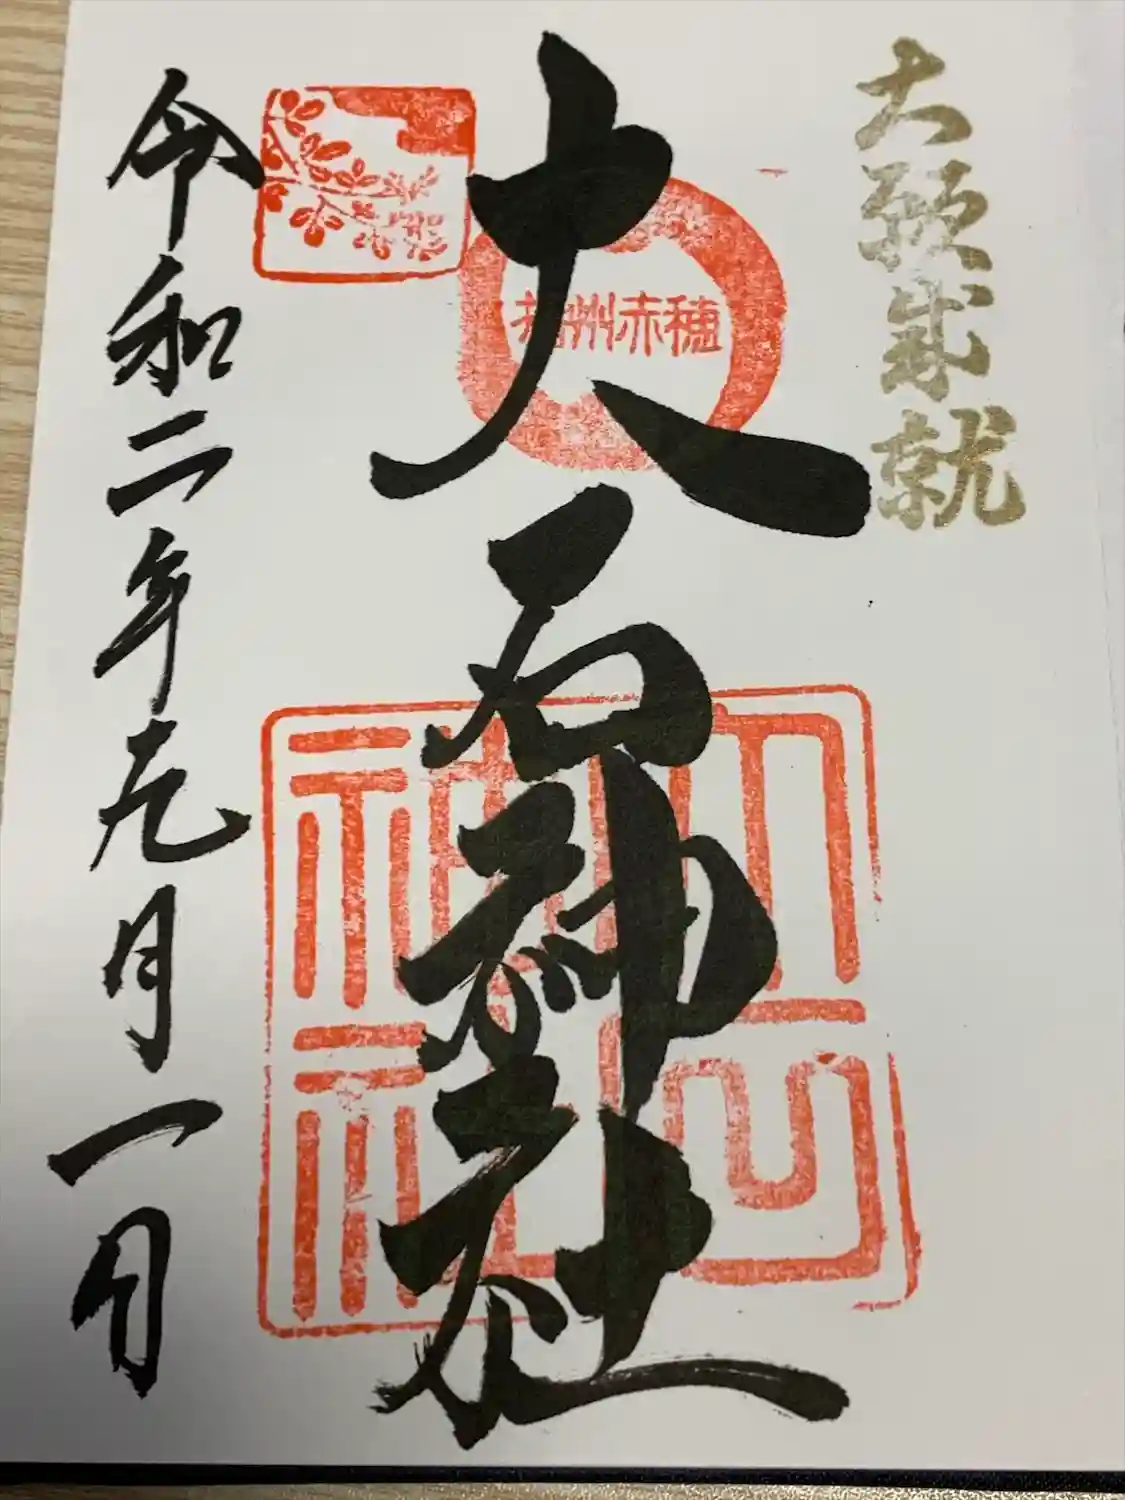 大願成就
大石神社
播州赤穂
大石神社
令和二年九月一日